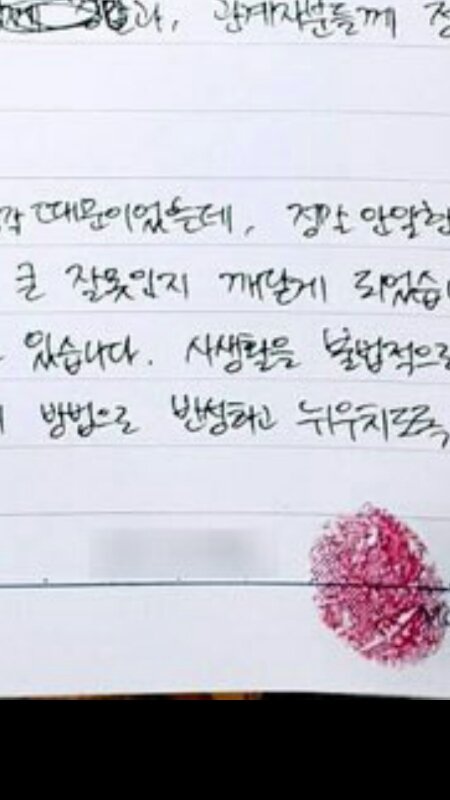 과, 관계자분들께
때문이었는데, 정말 안일한
큰 잘못인지 깨닫게 되었습
있습니다. 사생활을 불법적으로
방법으로 반성하고 뉘우치도록